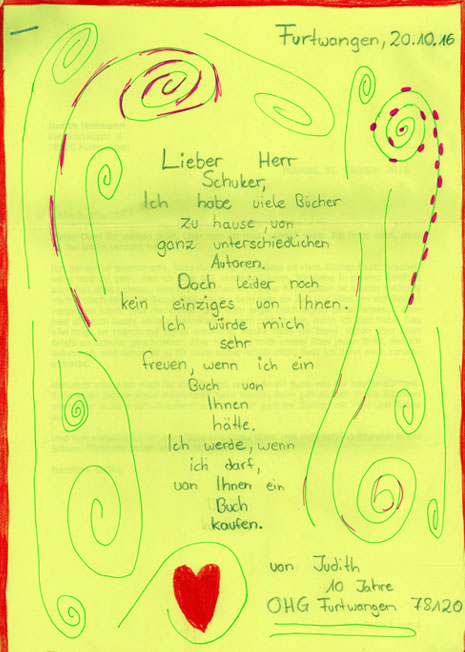 Furtwangen, 20.10.16
Lieber Herr
Schuker,
Ich habe viele Bücher
zu hause, von
ganz unterschiedlichen
Autoren.
Doch leider noch
kein einziges von Ihnen.
Ich würde mich
sehr
freuen, wenn ich ein
Buch von
Ihnen
hätte.
Ich werde, wenn
ich darf,
von Ihnen ein
Buch
kaufen.
von Judith
10 Jahre
OHG Furtwangen 78120